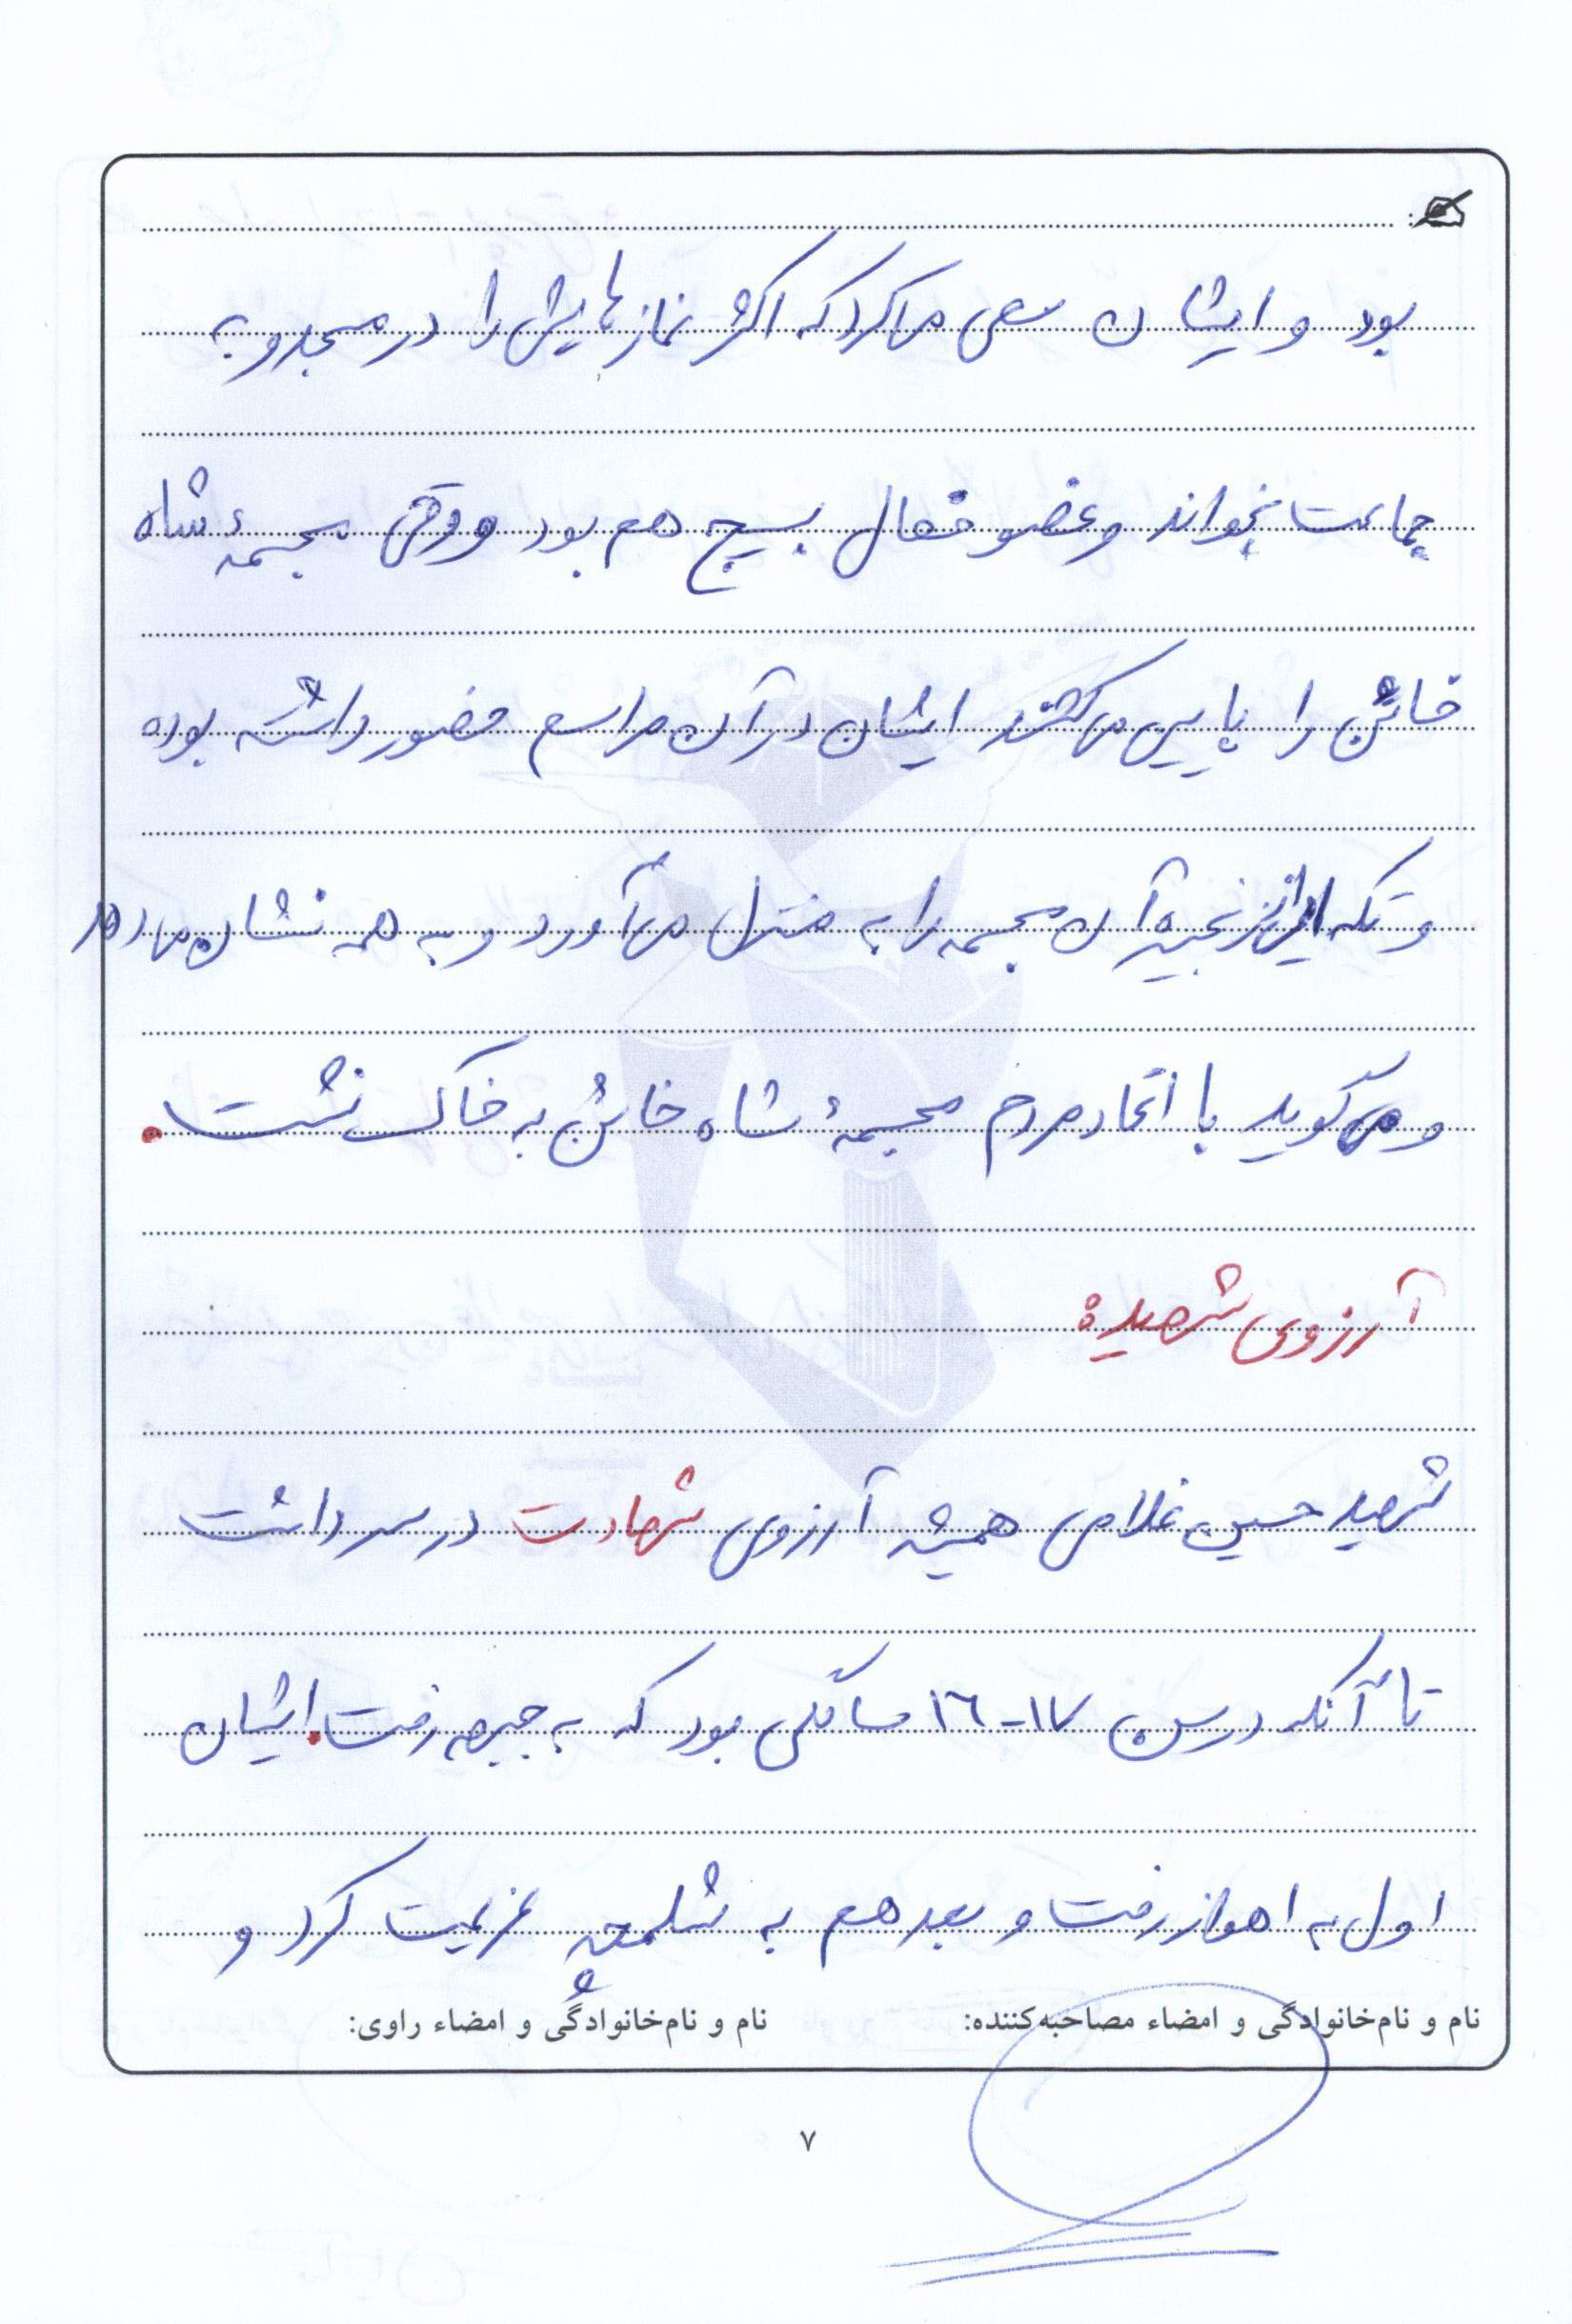 بود و ایشان سعی می‌کرد که اکثر نمازهایش را در مسجد و به
جماعت بخواند و عضو فعال بسیج هم بود و وقتی مجسمهٔ شاه
خائن را پایین می‌کشند ایشان در آن مراسم حضور داشته بوده
و تکه ای از زنجیره آن مجسمه را به منزل می‌آورد و به همه نشان می‌دهد
و می‌گوید با اتحاد مردم مجسمهٔ شاه خائن به خاک نشست.
آرزوی شهید:
شهید حسین غلامی همیشه آرزوی شهادت در سر داشت
تا آنکه در سن ۱۷-۱۶ سالگی بود که به جبهه رفت. ایشان
اول به اهواز رفت و بعد هم به شلمچه عزیمت کرد و
نام و نام‌خانوادگی و امضاء مصاحبه‌کننده: نام و نام‌خانوادگی و امضاء راوی:
۷